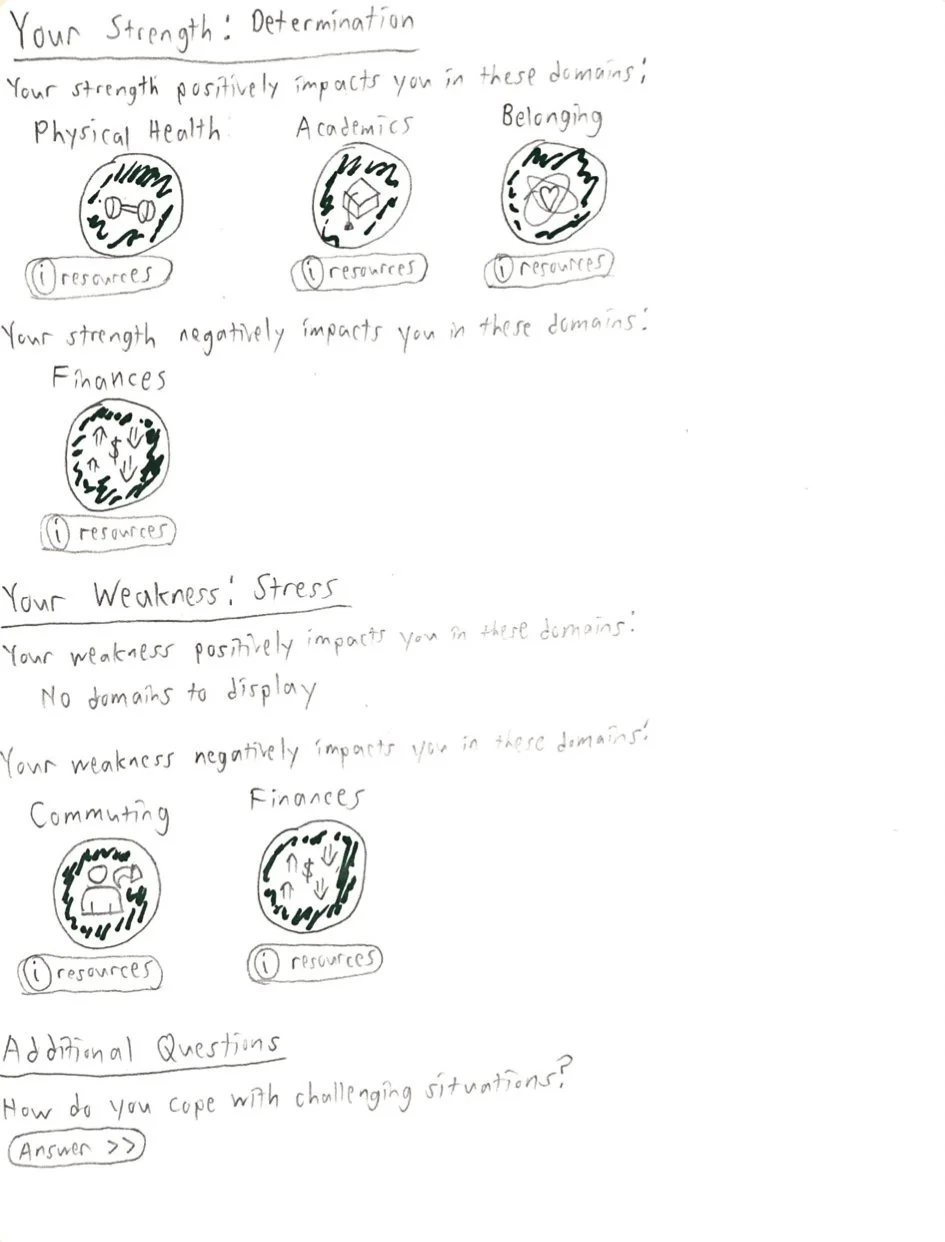 Your Strength: Determination
Your strength positively impacts you in these domains:
Physical Health Academics Belonging
i resources i resources i resources
Your strength negatively impacts you in these domains:
Finances
$
i resources
Your Weakness: Stress
Your weakness positively impacts you in these domains:
No domains to display
Your weakness negatively impacts you in these domains:
Commuting Finances
$
i resources i resources
Additional Questions
How do you cope with challenging situations?
Answer >>